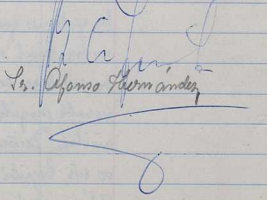 Sr. Alfonso Hernández